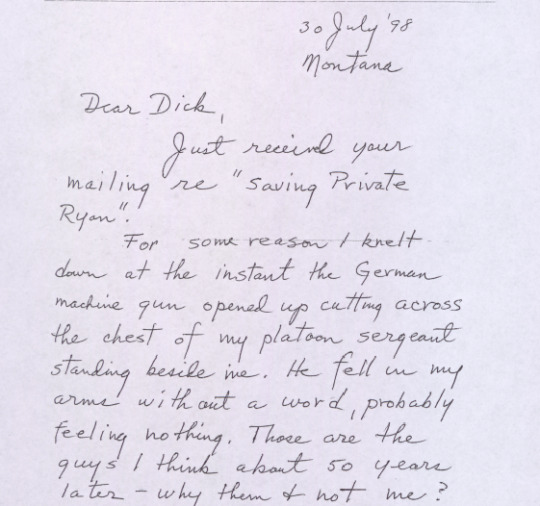 30 July '98
Montana
Dear Dick,
Just receivd your
mailing re "Saving Private
Ryan".
For some reason I knelt
down at the instant the German
machine gun opened up cutting across
the chest of my platoon sergeant
standing beside me. He fell in my
arms without a word, probably
feeling nothing. Those are the
guys I think about 50 years
later - why them & not me?